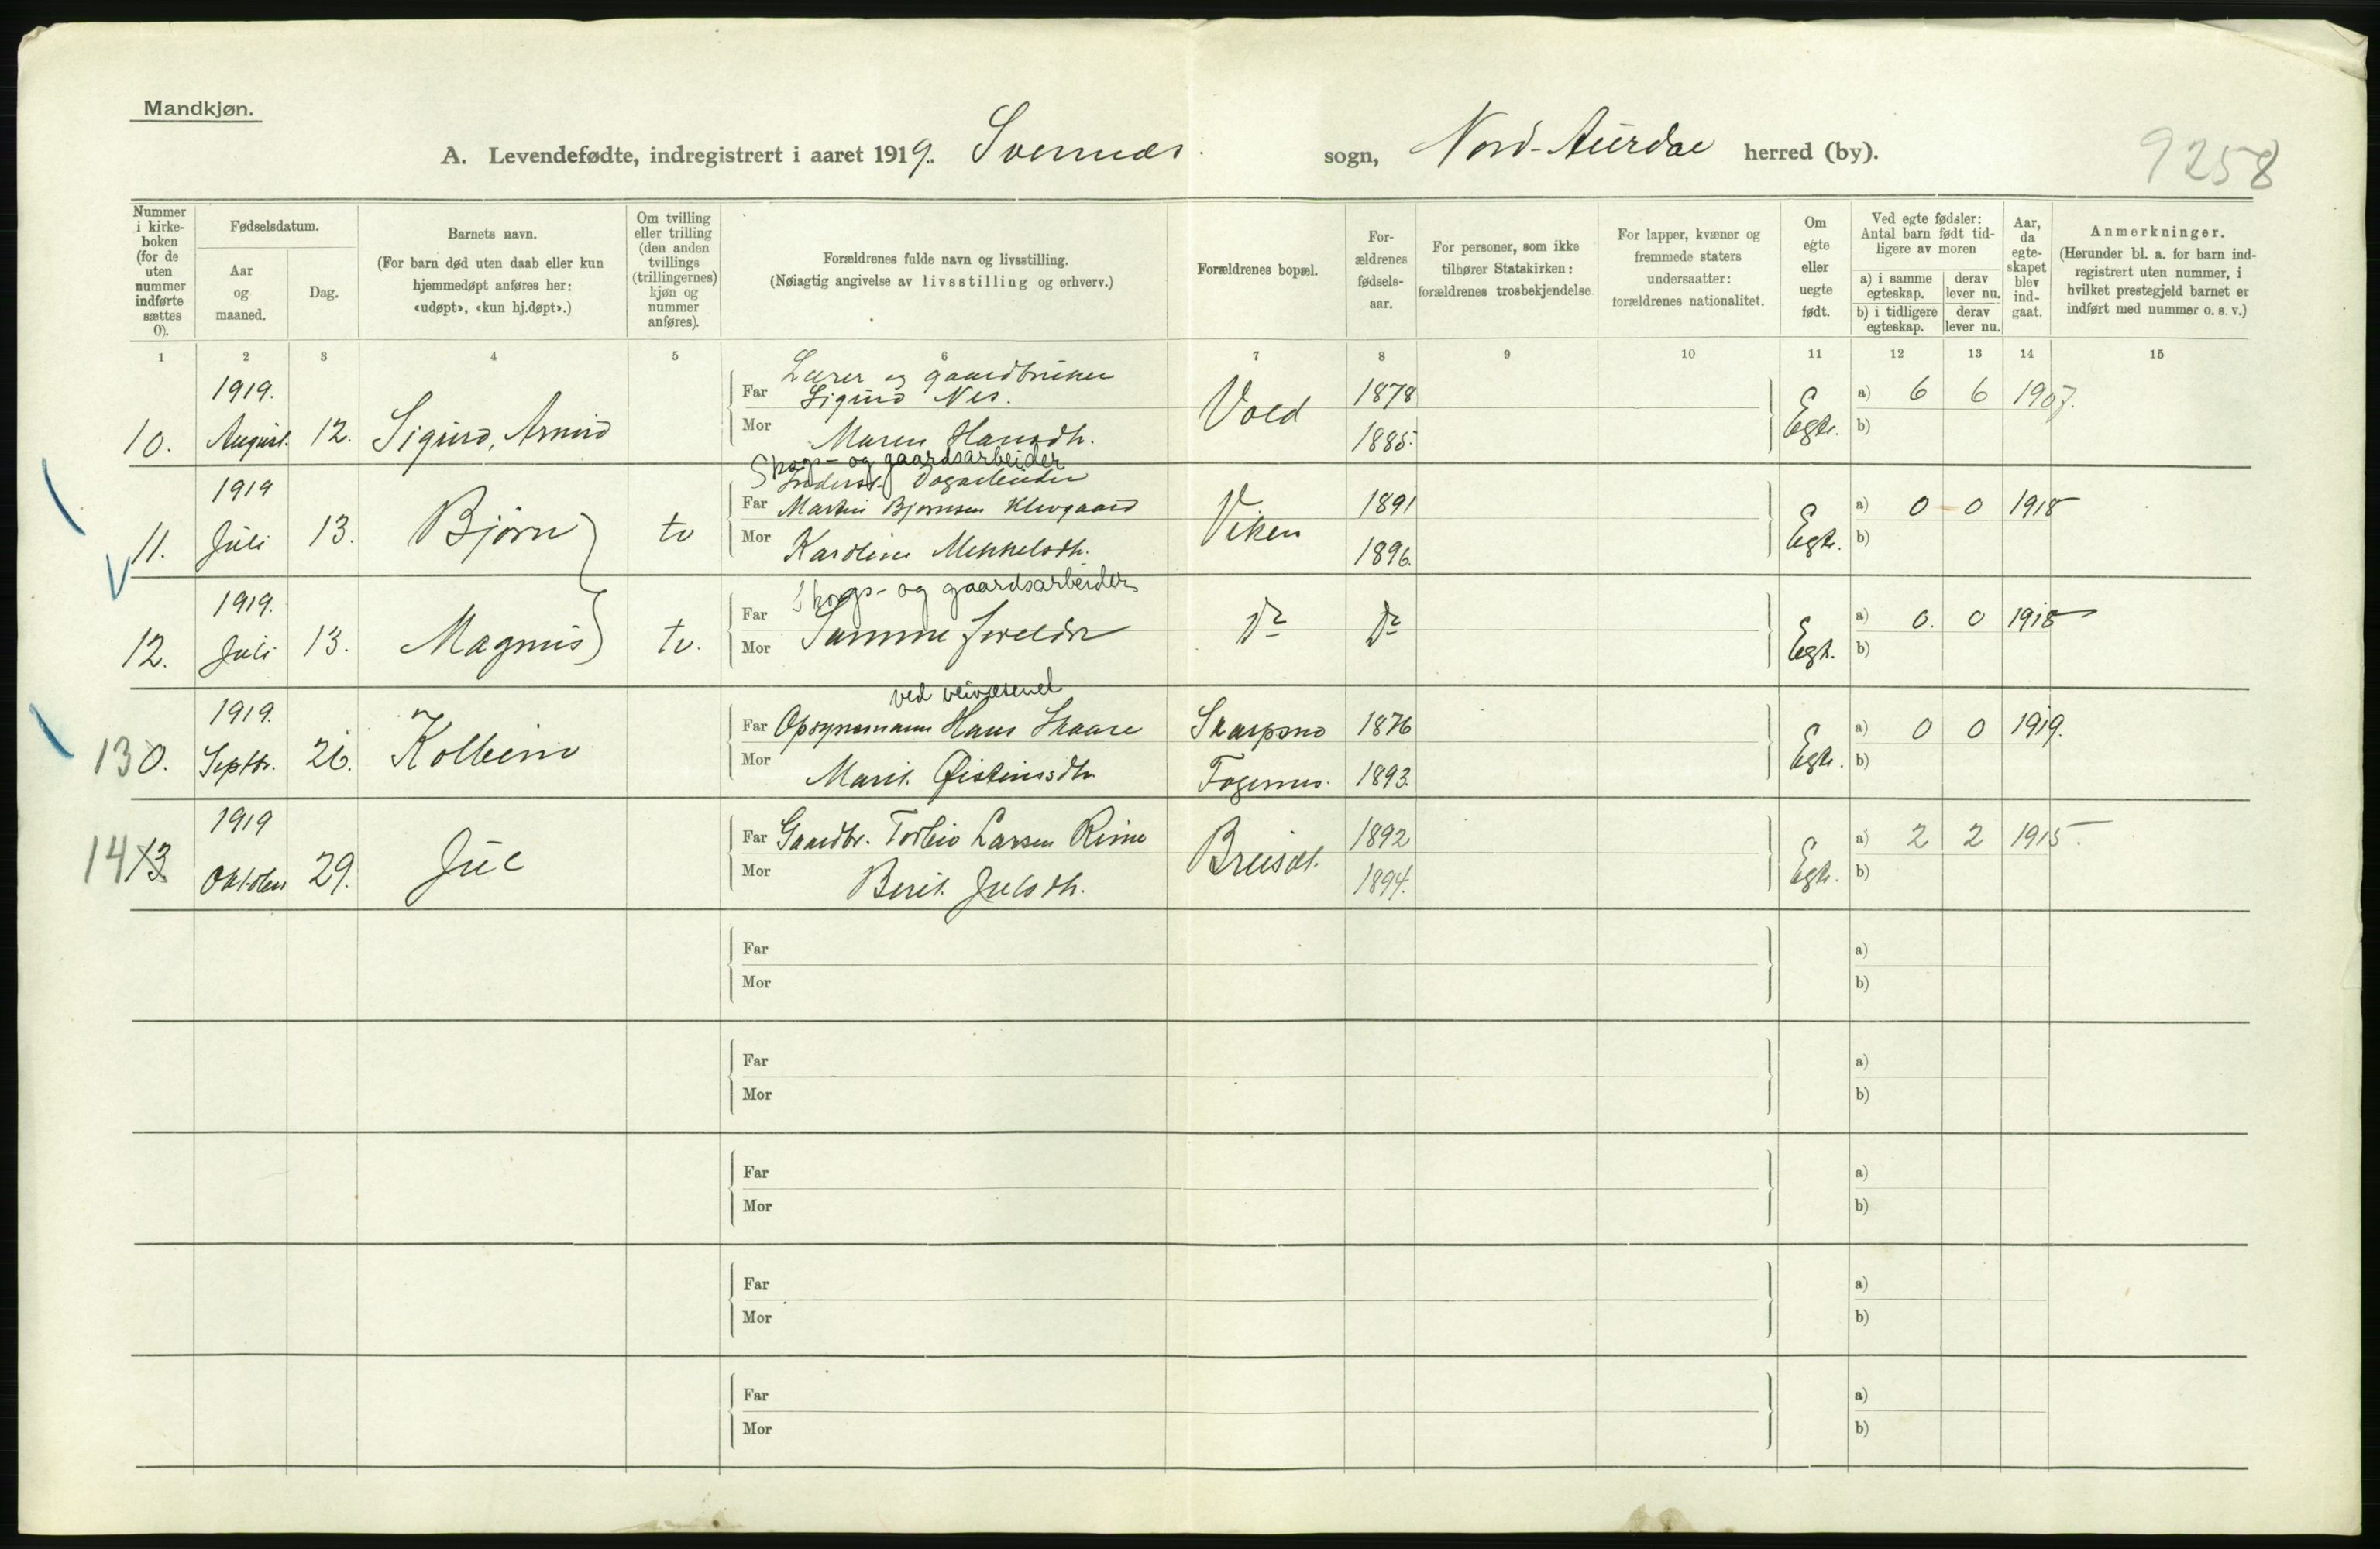 Mandkjøn.
A. Levendefødte, indregistrert i aaret 1919. Svennes sogn, Nord-Aurdal herred (by).
9258
Nummer i kirkeboken (for de uten nummer indførte sættes 0).
Fødselsdatum.
Aar og maaned.
Dag.
Barnets navn.
(For barn død uten daab eller kun hjemmedøpt anføres her: «udøpt», «kun hj.døpt».)
Om tvilling eller trilling (den anden tvillings (trillingernes) kjøn og nummer anføres).
Forældrenes fulde navn og livsstilling.
(Nøiagtig angivelse av livsstilling og erhverv.)
Forældrenes bopæl.
Forældrenes fødselsaar.
For personer, som ikke tilhører Statskirken: forældrenes trosbekjendelse.
For lapper, kvæner og fremmede staters undersaatter: forældrenes nationalitet.
Om egte eller uegte født.
Ved egte fødsler: Antal barn født tidligere av moren
a) i samme egteskap.
derav lever nu.
b) i tidligere egteskap.
derav lever nu.
Aar, da egteskapet blev indgaat.
Anmerkninger.
(Herunder bl. a. for barn indregistrert uten nummer, i hvilket prestegjeld barnet er indført med nummer o. s. v.)
1 2 3 4 5 6 7 8 9 10 11 12 13 14 15
1919. Lærer og gaardbruker
Far Sigurd Nes. 1878 a) 6 6 1907.
10. August. 12. Sigurd, Arnvid Mor Maren Hansdtr. Vold 1885. Egte. b)
Skogs- og gaardsarbeider
1919 Dagarbeider
Far Martin Bjørnsen Klevgaard 1891 a) 0 0 1918
11. Juli 13. Bjørn tv Mor Karoline Mikkelsdtr. Viken 1896. Egte. b)
Skogs- og gaardsarbeider
1919. Far Samme foreldre do do a) 0. 0 1918
12. Juli 13. Magnus tv. Mor Egte. b)
ved veivæsenet
1919. Far Opsynsmann Hans Skaare Skarpsno 1876 a) 0 0 1919.
13 0. Septbr. 26. Kolbein Mor Marit Øisteinsdtr. Fagernes. 1893. Egte. b)
1919 Far Gaardbr. Torleiv Larsen Rime 1892 a) 2 2 1915.
14 13 Oktober 29. Jul Mor Berit Julsdtr. 1894. Egte. b)
Far a)
Mor b)
Far a)
Mor b)
Far a)
Mor b)
Far a)
Mor b)
Far a)
Mor b)